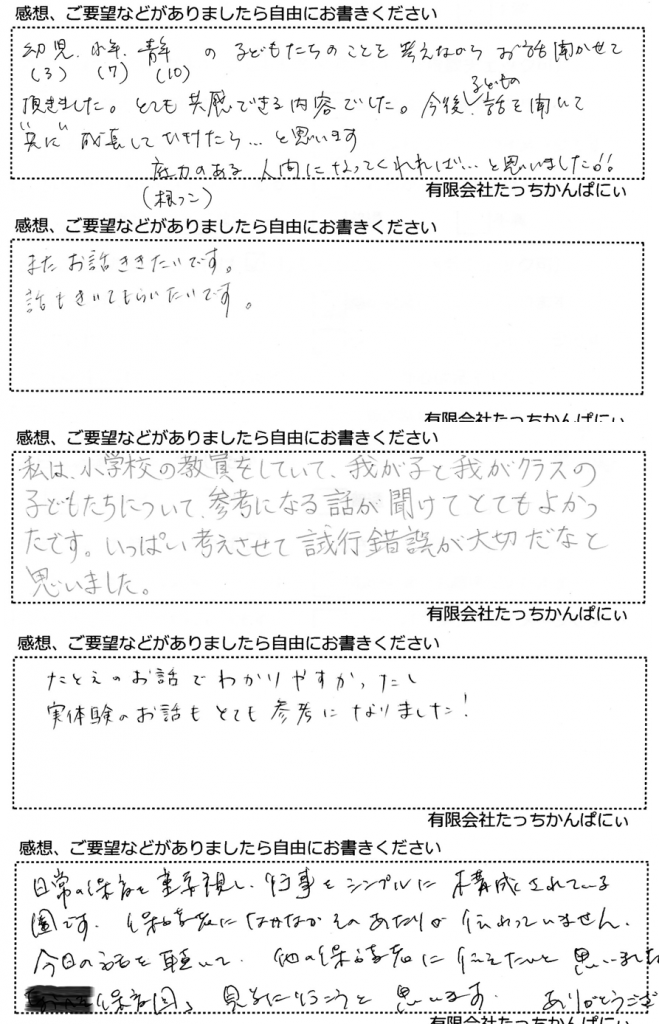 感想、ご要望などがありましたら自由にお書きください
幼児、少年、青年 の 子どもたちのことを 考えながら お話聞かせて
(3) (7) (10)
頂きました。とても 共感できる内容でした。今後、子どもの話を聞いて
"共に" 成長して いけたら… と思います
底力のある 人間になってくれれば… と思いました!!
(根っこ)
有限会社たっちかんぱにぃ
感想、ご要望などがありましたら自由にお書きください
また お話ききたいです。
話もきいてもらいたいです。
有限会社たっちかんぱにぃ
感想、ご要望などがありましたら自由にお書きください
私は、小学校の教員をしていて、我が子と我がクラスの
子どもたちについて、参考になる話が聞けてとてもよかっ
たです。いっぱい考えさせて試行錯誤が大切だなと
思いました。
有限会社たっちかんぱにぃ
感想、ご要望などがありましたら自由にお書きください
たとえのお話でわかりやすかったし
実体験のお話もとても参考になりました!
有限会社たっちかんぱにぃ
感想、ご要望などがありましたら自由にお書きください
日常の保育を重要視し、行事をシンプルに 構成されている
園です。保護者になかなかそのあたりが 伝わっていません。
今日の話を聴いて、他の保護者に伝えたいと思いました
保育園、見学に行こうと思います。 ありがとうござ
有限会社たっちかんぱにぃ